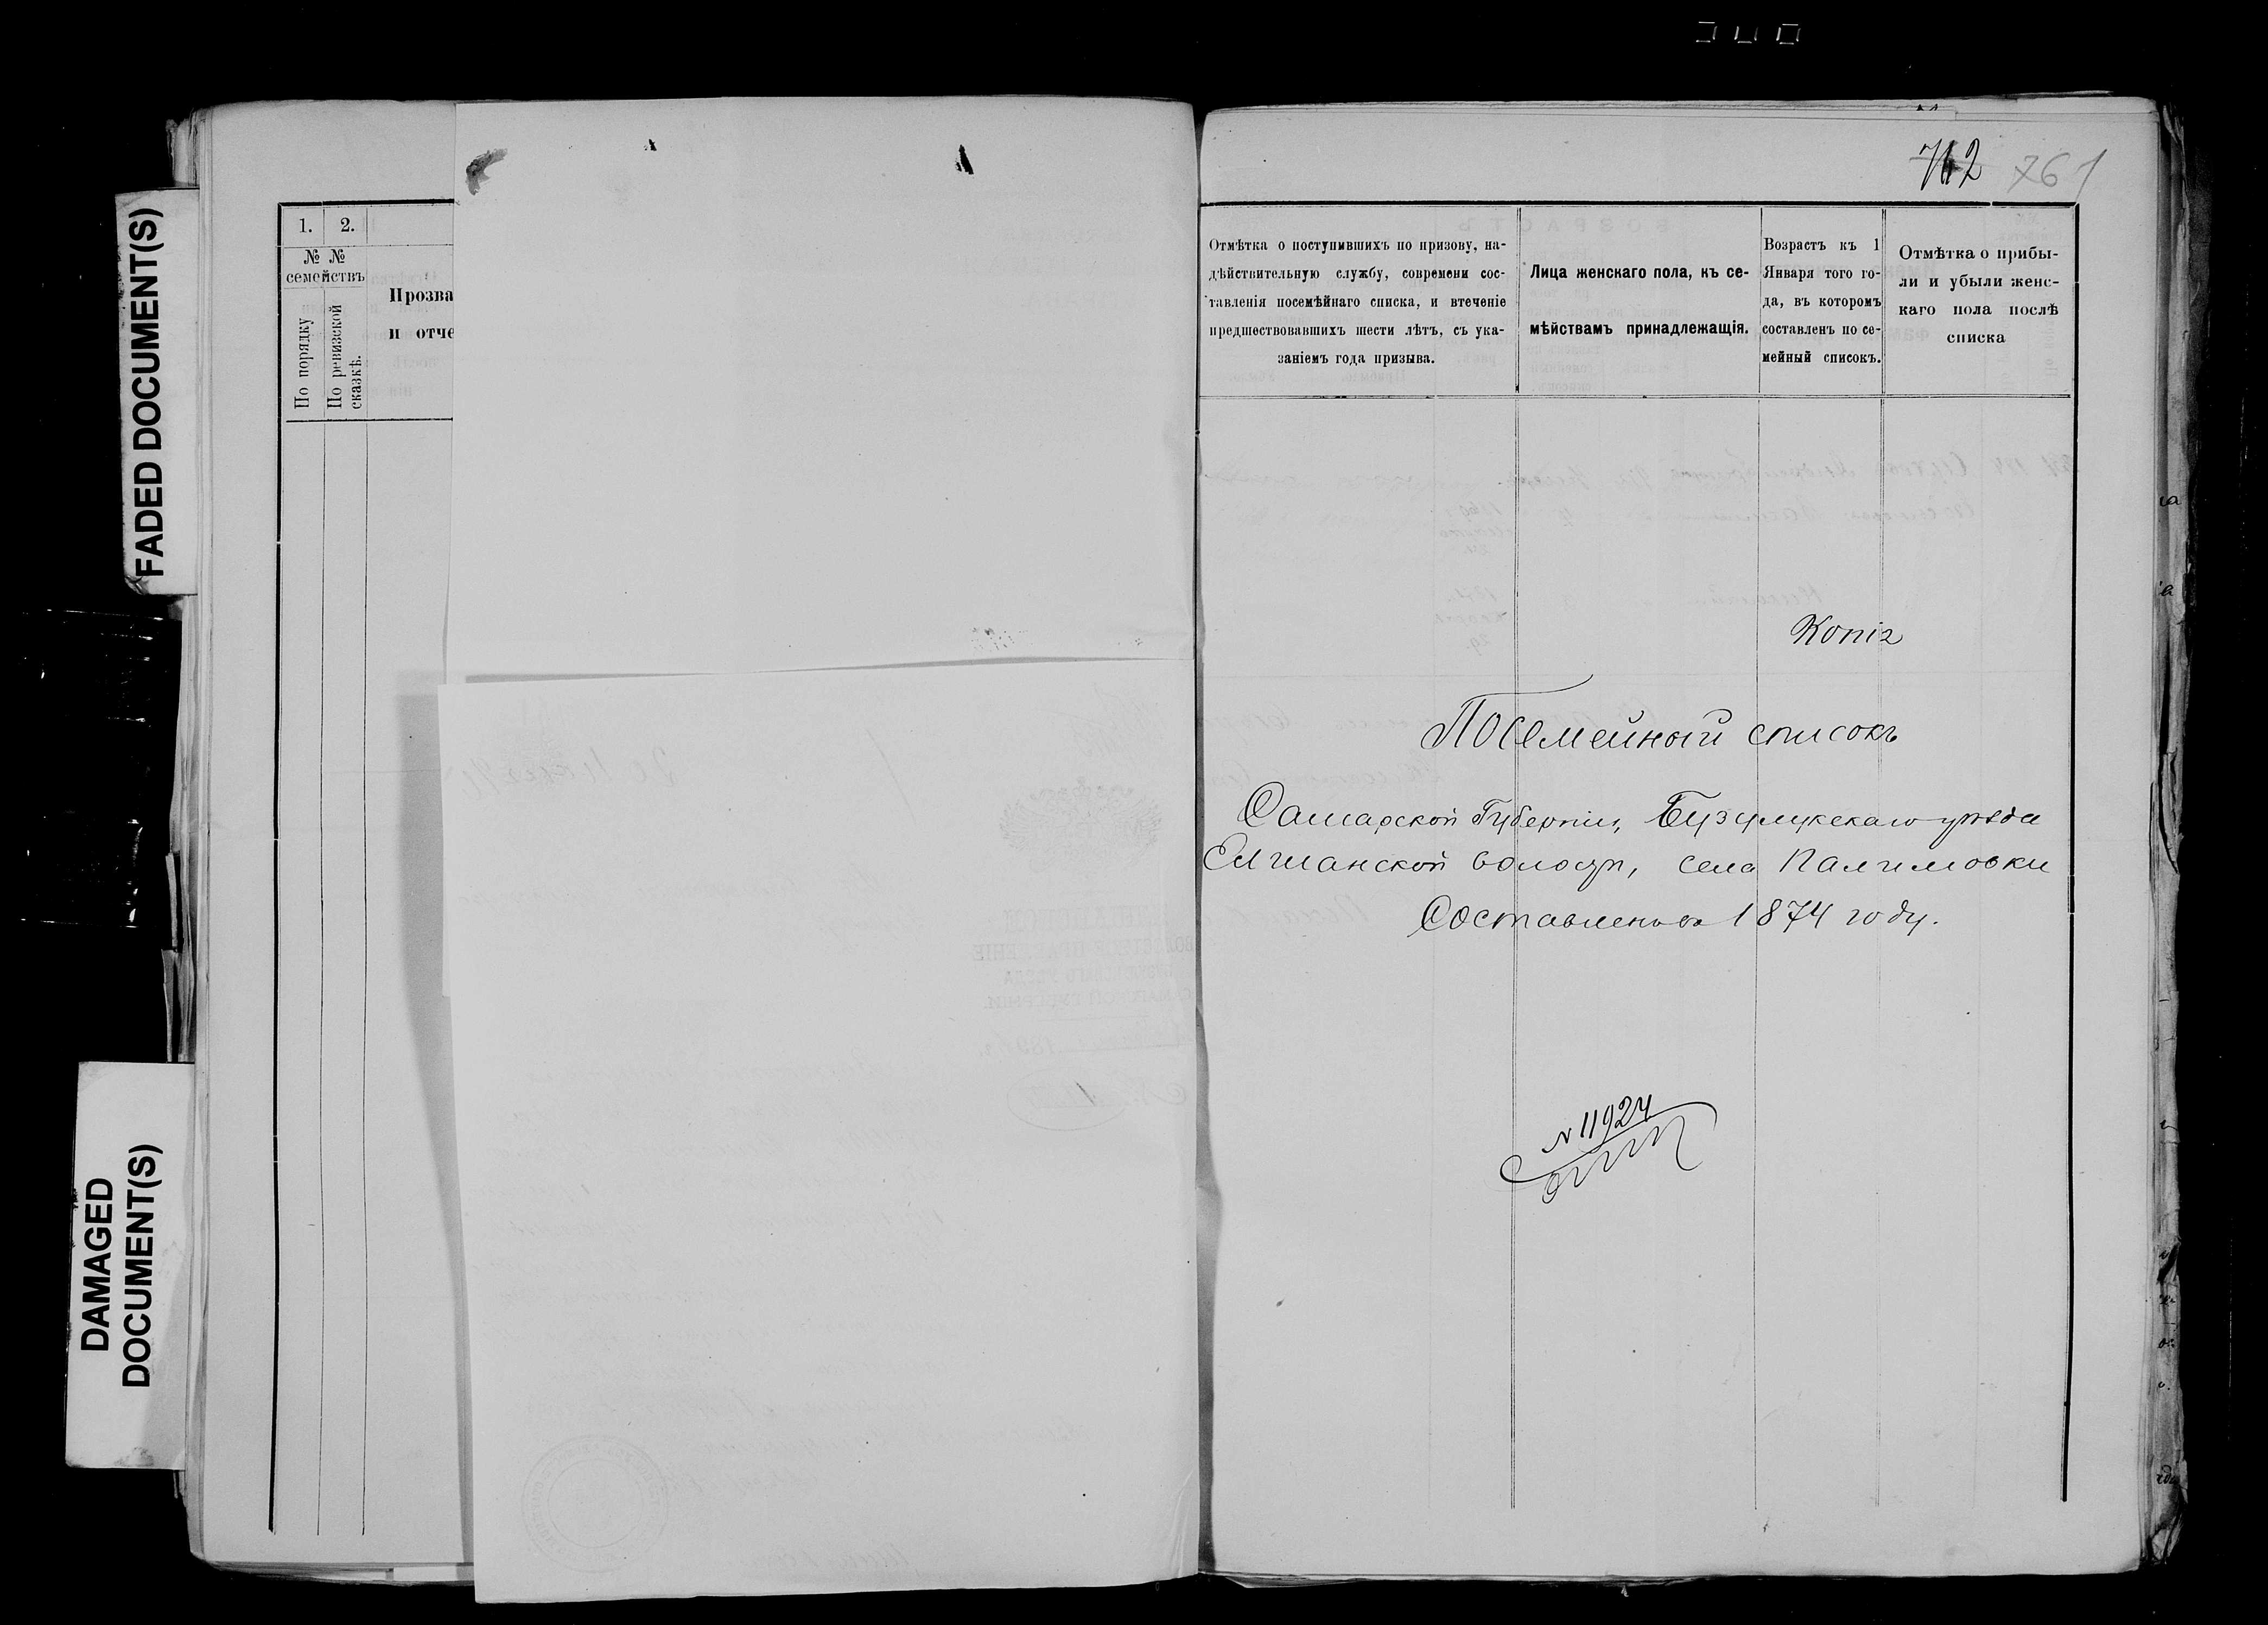 FADED DOCUMENT(S)
DAMAGED
DOCUMENT(S)
1. 2.
№ №
семействъ
По порядку
По ревизской
сказкѣ.
Прозва
и отче
742 761
Отмѣтка о поступившихъ по призову, на-
дѣйствительную службу, современи сос-
тавленія посемѣйнаго списка, и втеченіе
предшествовавшихъ шести лѣтъ, съ ука-
заніемъ года призыва.
Лица женскаго пола, къ се-
мѣйствамъ принадлежащія.
Возрастъ къ 1
Января того го-
да, въ которомъ
составленъ по се-
мейный списокъ.
Отмѣтка о прибы-
ли и убыли женс-
каго пола послѣ
списка
Копія
Посемейный списокъ
Самарской Губерніи, Бузулукскаго уѣзда
Елшанской волости, села Палимовки
Составленъ въ 1874 году.
№ 11924